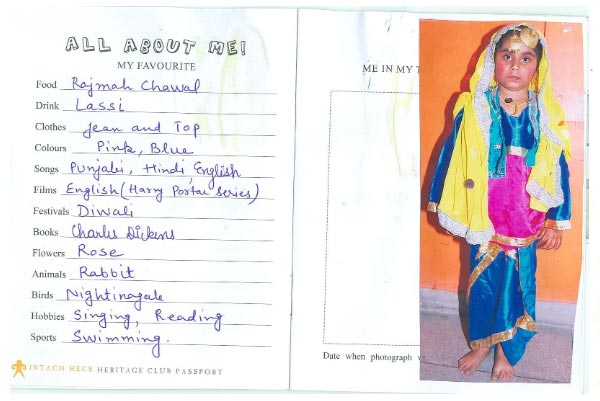 ALL ABOUT ME!
MY FAVOURITE
Food Rajmah Chawal
Drink Lassi
Clothes Jean and Top
Colours Pink, Blue
Songs Punjabi, Hindi, English
Films English (Harry Portar Series)
Festivals Diwali
Books Charles Dickens
Flowers Rose
Animals Rabbit
Birds Nightinagale
Hobbies Singing, Reading
Sports Swimming.
INTACH HECS HERITAGE CLUB PASSPORT
ME IN MY
Date when photograph